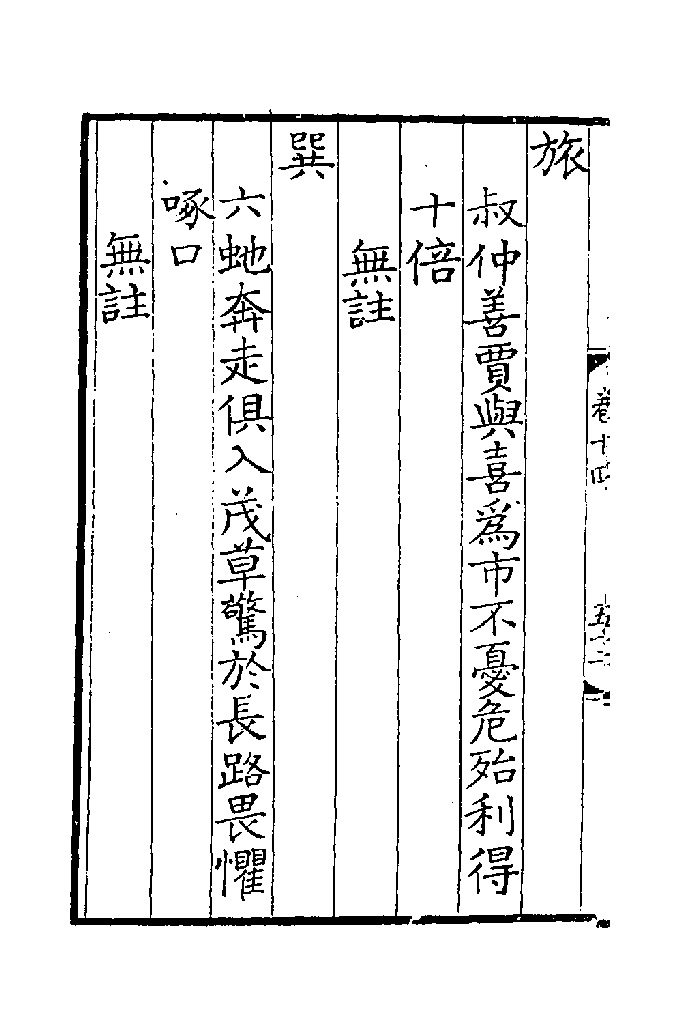 旅
叔仲善賈與喜爲市不憂危殆利得
十倍
無註
巽
六虵奔走俱入茂草驚於長路畏懼
啄口
無註
卷十四
五十二